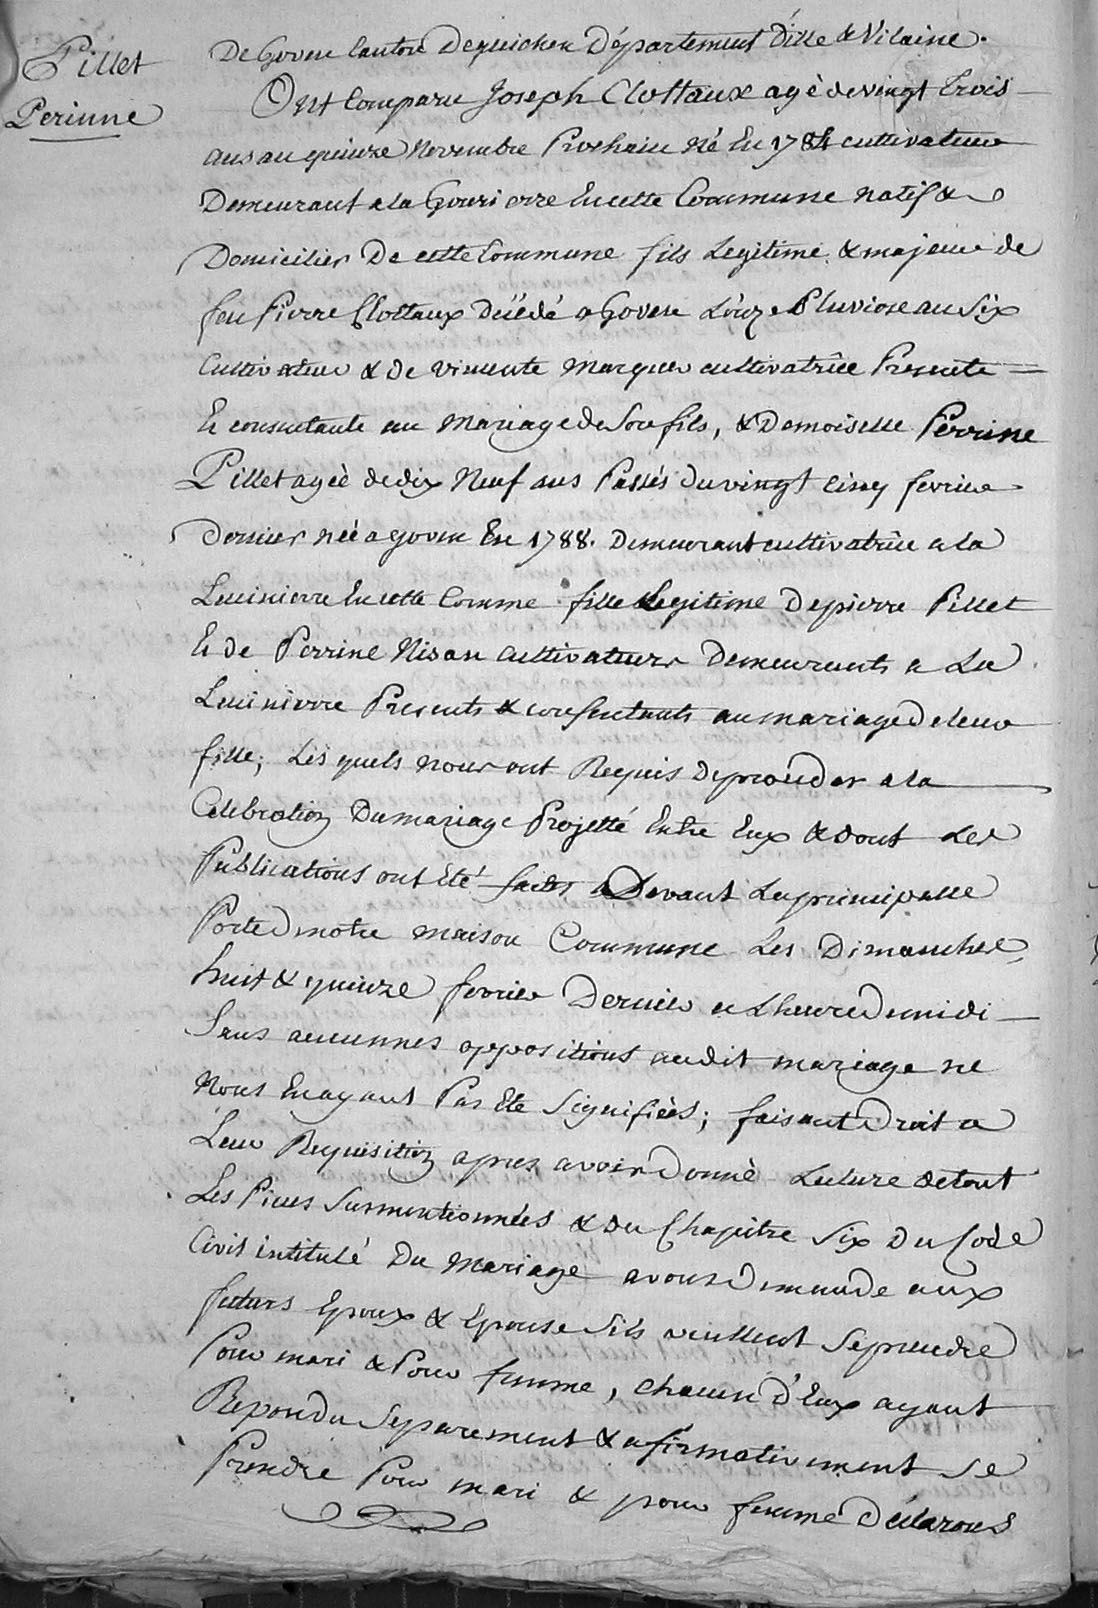 Pillet
Perinne
De Goven Canton Deguichen Département D'ille & Vilaine.
Ont Comparu Joseph Clottaux agé de vingt trois
ans au quinze Novembre Prochain Né En 1784 cultivateur
Demeurant a la Gouri erre En cette Commune natif &
Domicilier De cette Commune fils Legitime & majeur de
feu Pierre Clottaux Décédé a Goven L'onze Pluviose an Six
Cultivateur & de Vincente Marquer cultivatrice Presente
Et consentante au Mariage de Son fils, & Demoiselle Perrine
Pillet agéé de dix Neuf ans Passés du vingt cinq fevrier
Dernier néé a goven En 1788. Demeurant cultivatrice a la
Leuinierre En cette Comme fille Legitime De pierre Pillet
Et de Perrine Nisan cultivateurs Demeurants a La
Leuinierre Presents & consentants au mariage De leur
fille; Les quels nous ont Requis De proceder a la
Celebration Du mariage Projetté Entre Eux & dont Les
Publications ont Eté faites Devant La principalle
Porte De notre maison Commune Les Dimanches
huit & quinze fevrier Dernier a L'heure De midi
Sans aucunnes oppositions audit mariage ne
Nous En ayant Pas Eté Signifiéés; faisant Droit a
Leur Requisition apres avoir Donné Lecture de tout
Les Pieces Surmentionnéés & du Chapitre Six Du Code
Civil intitulé Du Mariage avons Demande aux
futurs Epoux & Epouse S'ils veullent Se prendre
Pour mari & Pour femme, chacun D'Eux ayant
Repondu Separement & afirmativement Se
Prendre Pour mari & pour femme Déclarons